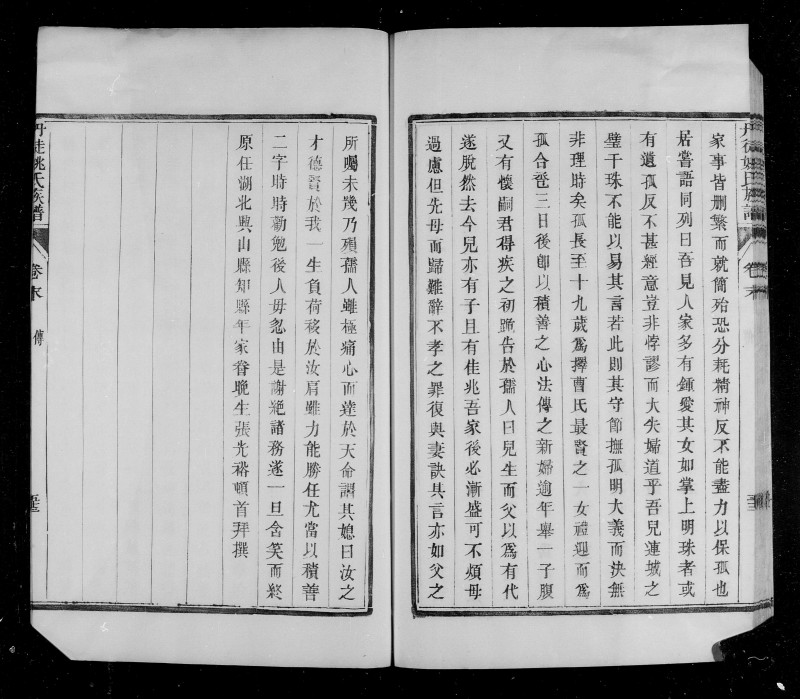 家事皆刪繁而就簡殆恐分耗精神反不能盡力以保孤也
居嘗語同列曰吾見人家多有鍾愛其女如掌上明珠者或
有遺孤反不甚經意豈非悖謬而大失婦道乎吾兒連城之
璧千珠不能以易其言若此則其守節撫孤明大義而決無
非理時矣孤長至十九歲為擇曹氏最賢之一女禮迎而為
孤合巹三日後即以積善之心法傳之新婦逾年舉一子腹
又有懷嗣君得疾之初跪告於孺人曰兒生而父以為有代
遂脫然去今兒亦有子且有佳兆吾家後必漸盛可不煩母
過慮但先母而歸難辭不孝之罪復與妻訣其言亦如父之
丹徒姚氏族譜
卷末
所囑未幾乃殞孺人雖極痛心而達於天命謂其媳曰汝之
才德賢於我一生負荷移於汝肩雖力能勝任尤當以積善
二字時時勸勉後人毋忽由是謝絕諸務遂一旦含笑而終
原任湖北興山縣知縣年家眷晚生張光裕頓首拜撰
丹徒姚氏族譜
卷末
傳